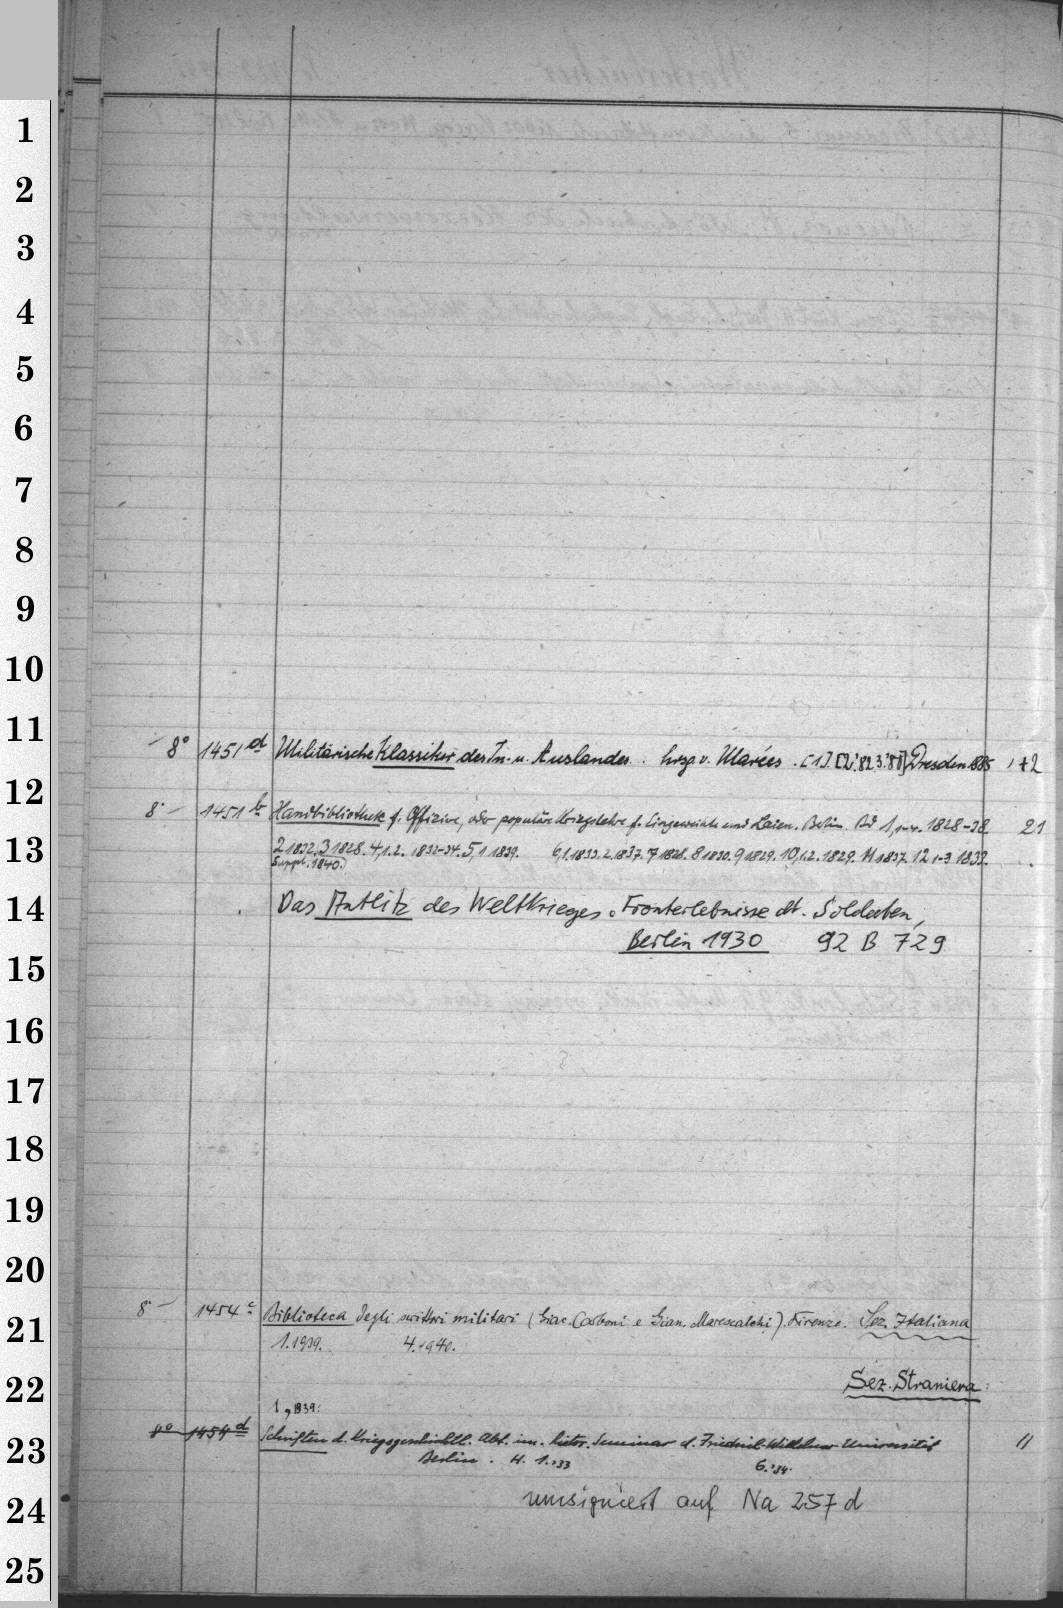 1
2
3
4
5
6
7
8
9
10
11
8° 1451 d Militärische Klassiker des In- u. Auslandes. hrsg. v. Marées. [1]. [2.'82 3.'80] Dresden 1885 1+2
12
8° 1451 b Handbibliothek f. Offiziere, oder populäre Kriegslehre f. Eingeweihte und Laien. Berlin. Bd 1,1-4. 1828-38. 21
13
2 1832. 3 1828. 4,1.2. 1832-34. 5,1 1839. 6,1.1833. 2.1837. 7 1828. 8 1830. 9 1829. 10,1.2. 1829. 11 1837. 12 1-3 1833.
Suppl. 1840.)
14
Das Antlitz des Weltkrieges. Fronterlebnisse dt. Soldaten,
Berlin 1930 92 B 729
15
16
17
18
19
20
8° 1454 c Biblioteca degli scrittori militari (Giac. Carboni e Gian. Marescalchi). Firenze. Sez. Italiana
21
1.1939. 4.1940.
22
Sez. Straniera:
1, 1939.
8° 1454 d Schriften d. Kriegsgeschichtl. Abt. im. histor. Seminar d. Friedrich-Wilhelms-Universität 11
23
Berlin. H. 1.'33 6.'34.
24
umsigniert auf Na 257 d
25